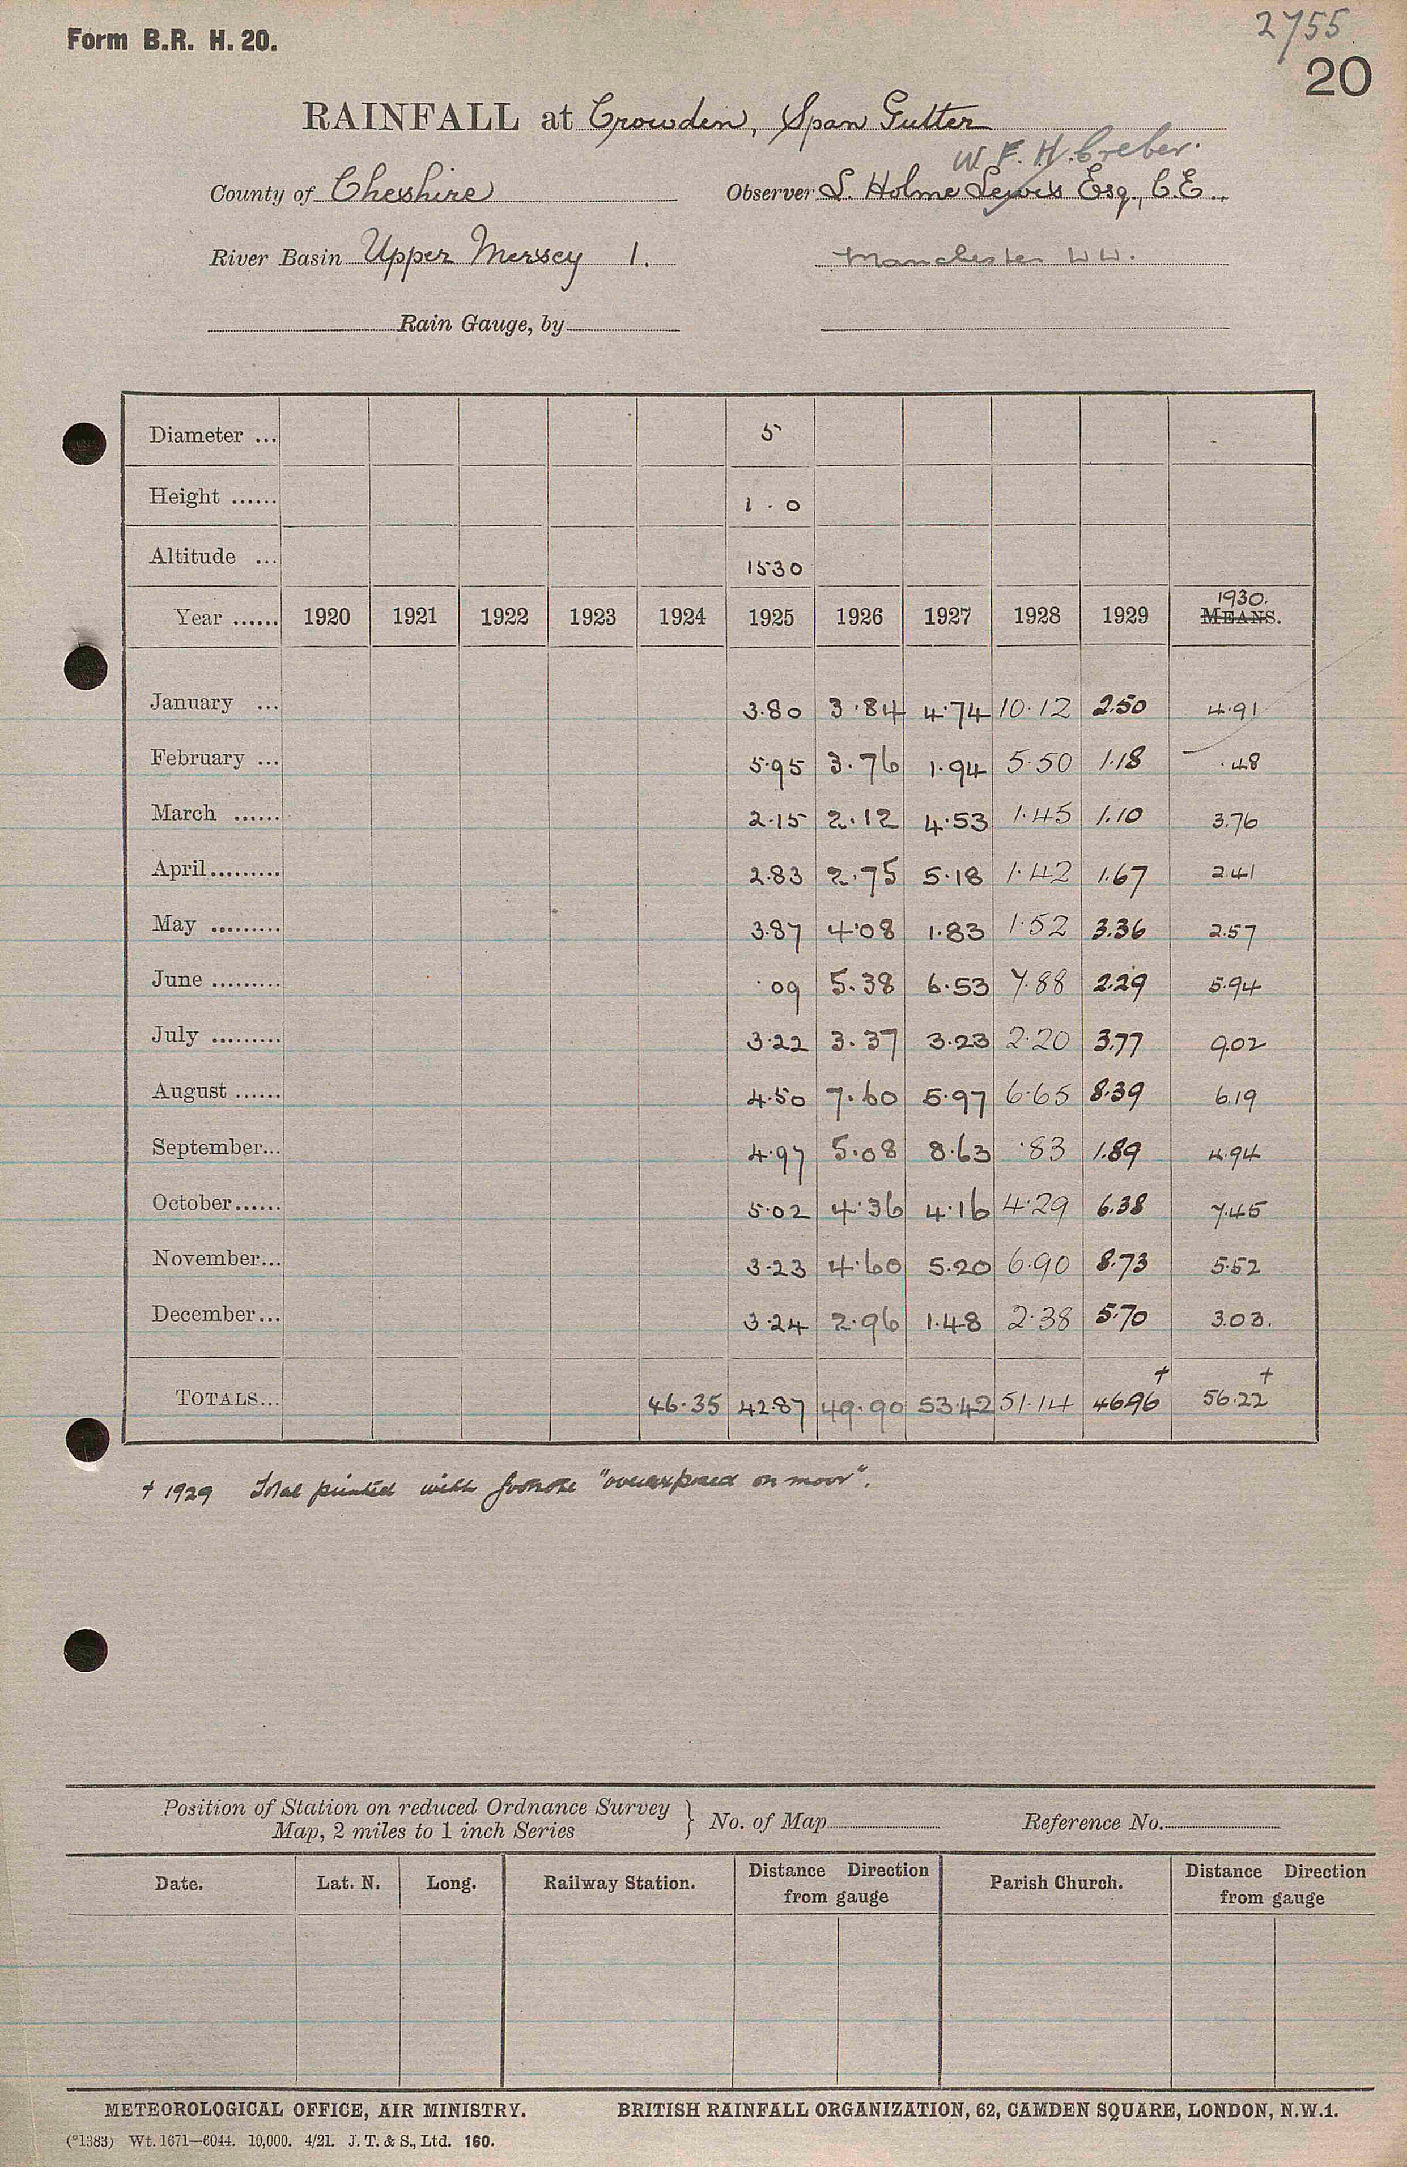 Form B.R. H. 20.
2755
20
RAINFALL at Crowden, Span Gutter
W F. H. Creber.
County of Cheshire Observer S. Holme Lewis Esq., C.E.,
River Basin Upper Mersey 1. Manchester W W.
Rain Gauge, by
Diameter ... 5
Height ...... 1 . 0
Altitude ... 1530
1930.
Year ...... 1920 1921 1922 1923 1924 1925 1926 1927 1928 1929 MEANS.
January ... 3.80 3.84 4.74 10.12 2.50 4.91
February ... 5.95 3.76 1.94 5.50 1.18 .48
March ...... 2.15 2.12 4.53 1.45 1.10 3.76
April......... 2.83 2.75 5.18 1.42 1.67 2.41
May ......... 3.87 4.08 1.83 1.52 3.36 2.57
June ......... .09 5.38 6.53 7.88 2.29 5.94
July ......... 3.22 3.37 3.23 2.20 3.77 9.02
August ...... 4.50 7.60 5.97 6.65 8.39 6.19
September... 4.97 5.08 8.63 .83 1.89 4.94
October...... 5.02 4.36 4.16 4.29 6.38 7.45
November... 3.23 4.60 5.20 6.90 8.73 5.52
December... 3.24 2.96 1.48 2.38 5.70 3.03.
TOTALS... 46.35 42.87 49.90 53.42 51.14 46.96† 56.22†
† 1929 Total printed with footnote "overexposed on moor".
Position of Station on reduced Ordnance Survey } No. of Map Reference No.
Map, 2 miles to 1 inch Series
Date. Lat. N. Long. Railway Station. Distance Direction Parish Church. Distance Direction
from gauge from gauge
METEOROLOGICAL OFFICE, AIR MINISTRY. BRITISH RAINFALL ORGANIZATION, 62, CAMDEN SQUARE, LONDON, N.W.1.
(*1383) Wt. 1671—6044. 10,000. 4/21. J. T. & S., Ltd. 160.